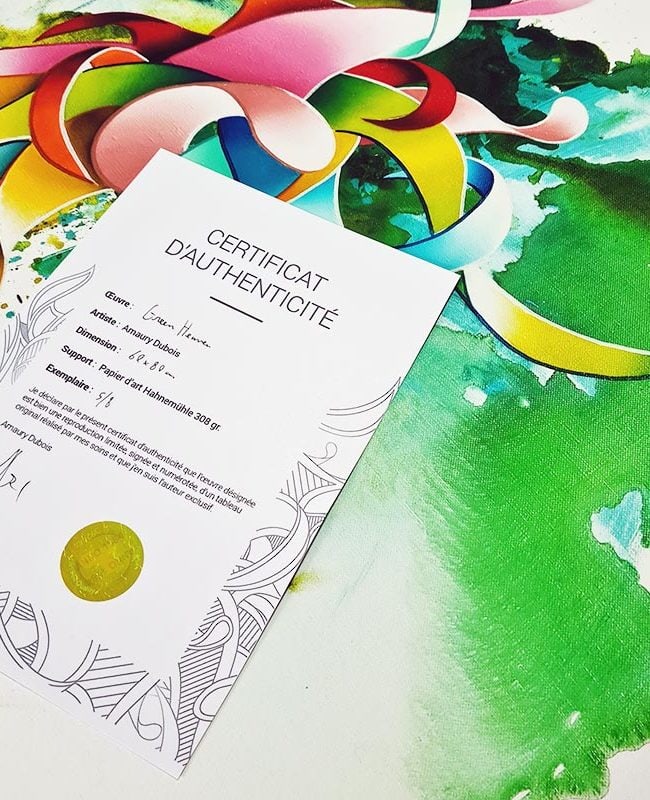 CERTIFICAT
D'AUTHENTICITÉ
Œuvre : Green Heaven
Artiste : Amaury Dubois
Dimension : 60x80cm
Support : Papier d'art Hahnemühle 308 gr.
Exemplaire : 5/8
Je déclare par le présent certificat d'authenticité que l'œuvre désignée
est bien une reproduction limitée, signée et numérotée, d'un tableau
original réalisé par mes soins et que j'en suis l'auteur exclusif.
Amaury Dubois